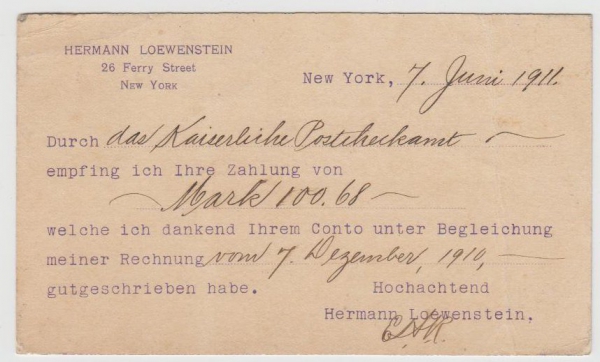 HERMANN LOEWENSTEIN
26 Ferry Street
NEW YORK
New York, 7. Juni 1911.
Durch das Kaiserliche Postcheckamt
empfing ich Ihre Zahlung von
Mark 100.68
welche ich dankend Ihrem Conto unter Begleichung
meiner Rechnung vom 7. Dezember, 1910,
gutgeschrieben habe.
Hochachtend
Hermann Loewenstein.